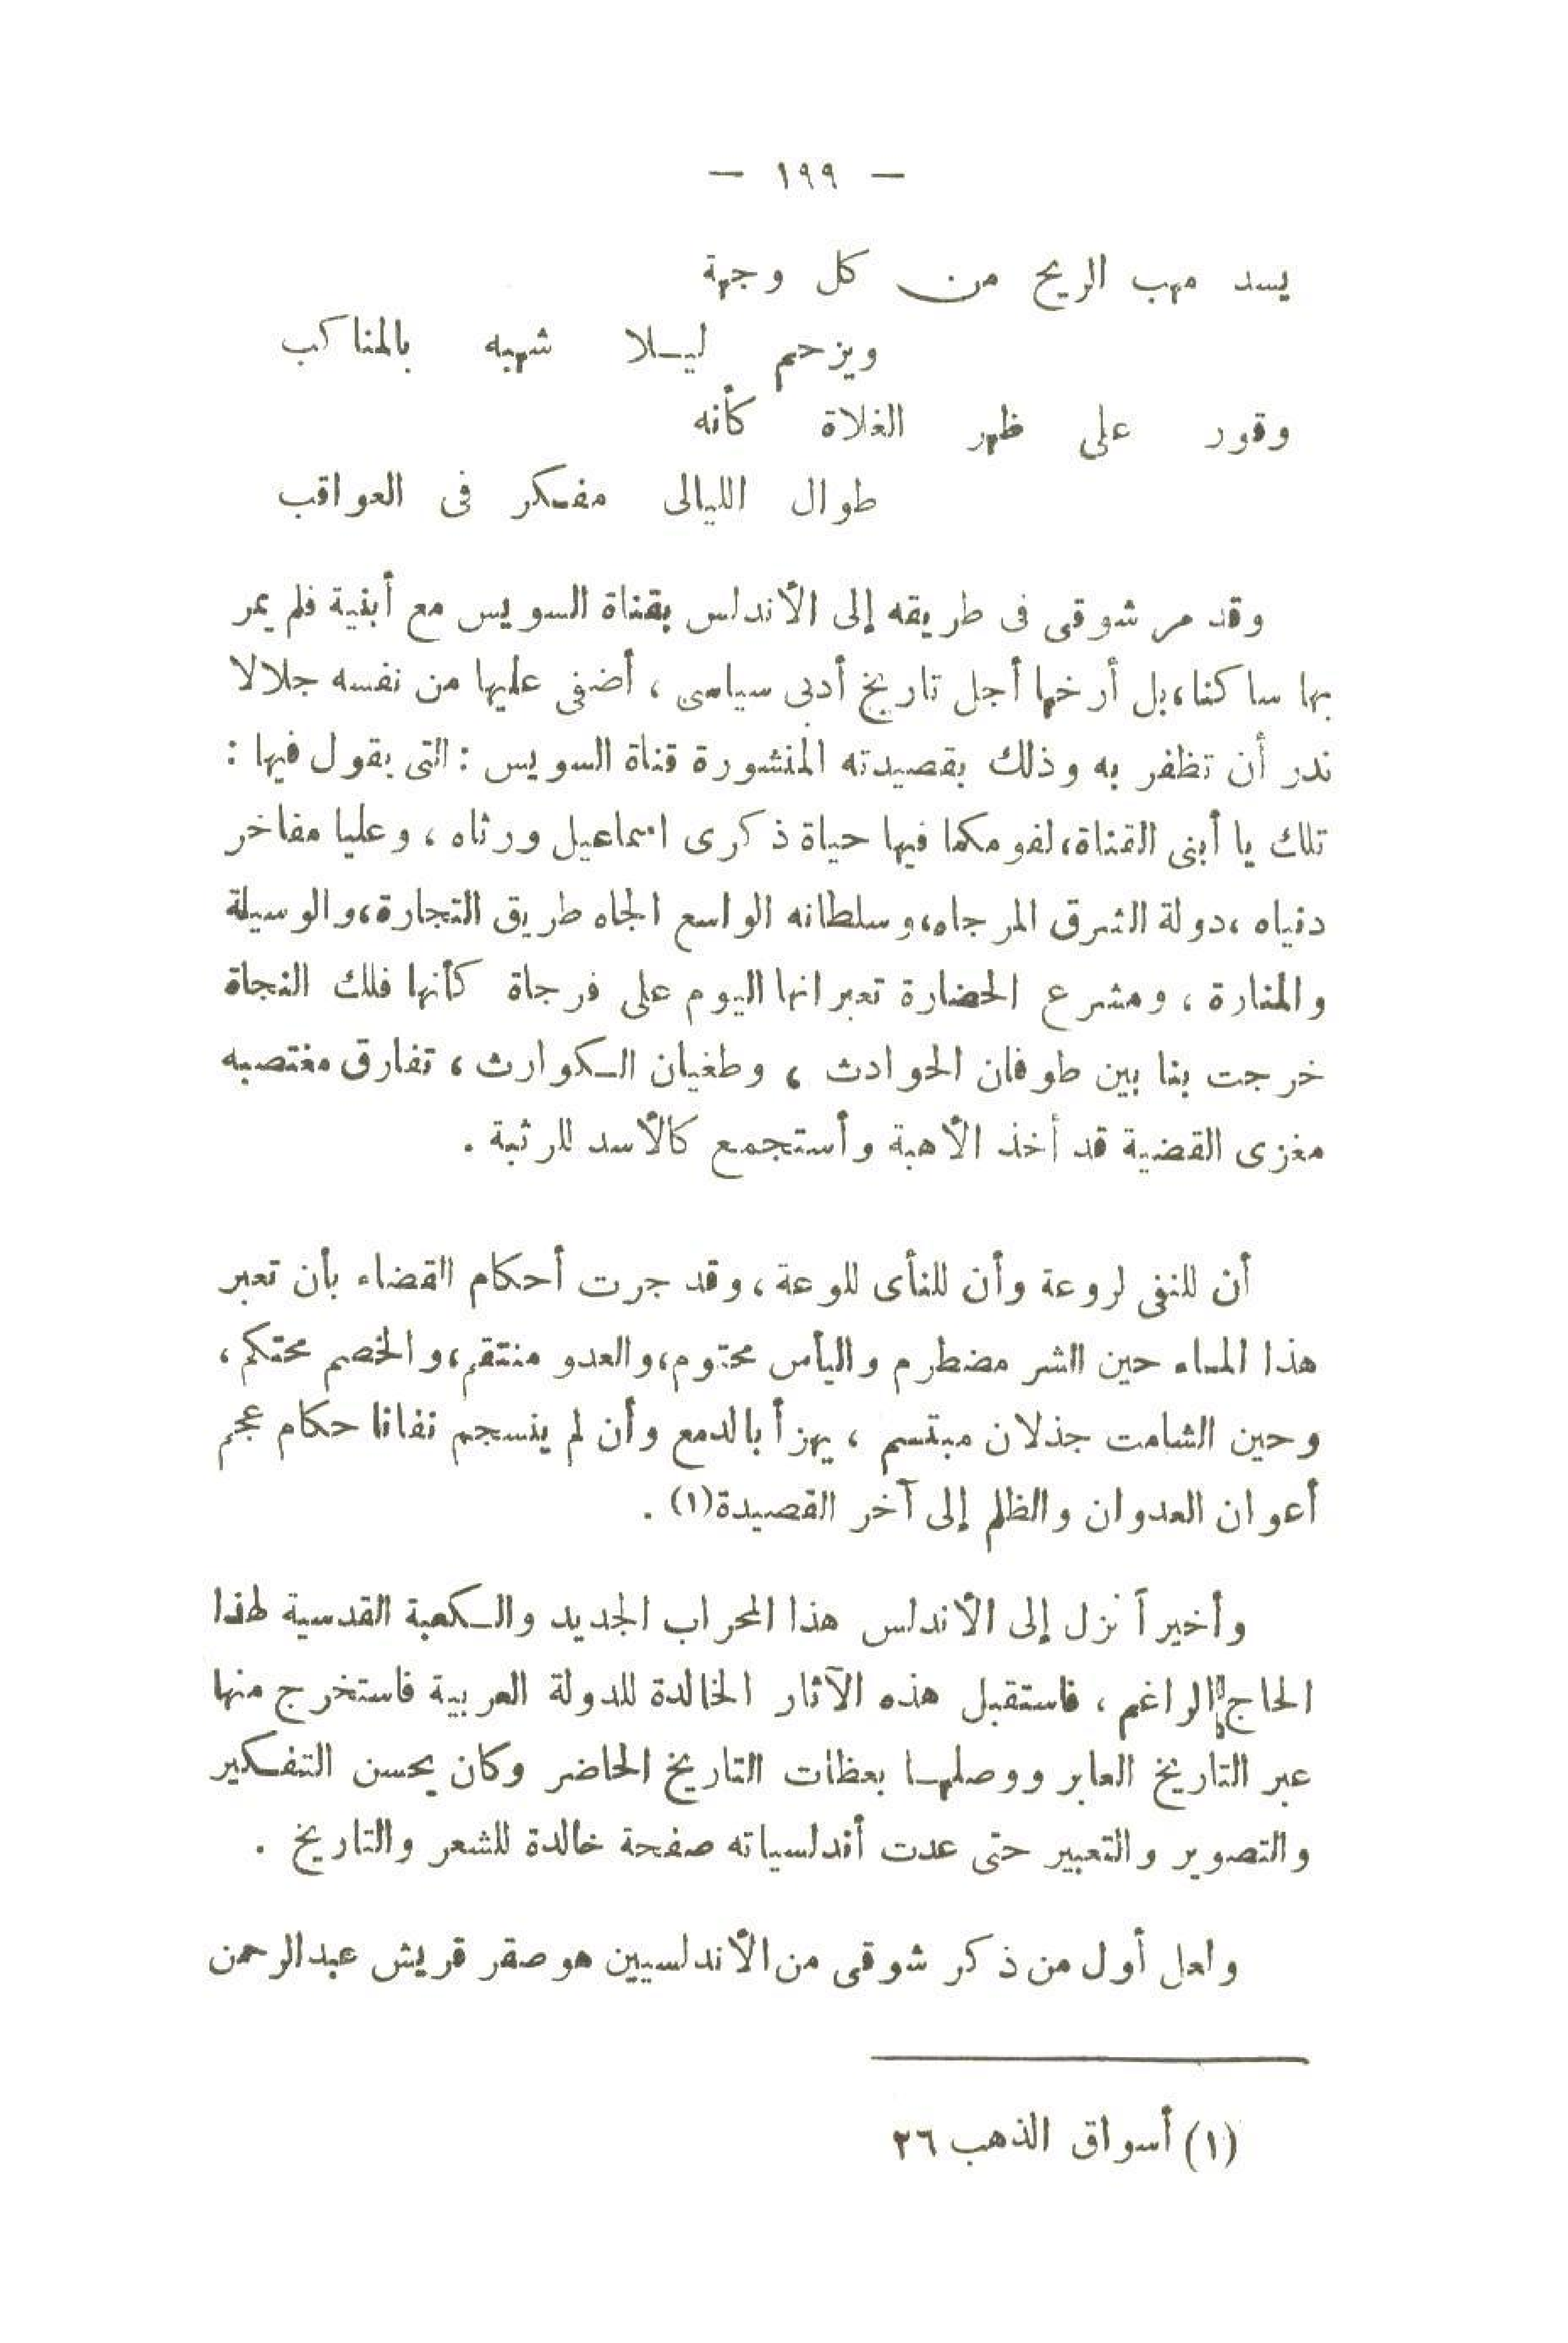 — ١٩٩ —
يسد مهب الريح من كل وجهة
ويزحم ليلا شهبه بالمناكب
وقور على ظهر الغلاة كأنه
طوال الليالى مفكر فى العواقب
وقد مر شوقى فى طريقه إلى الأندلس بقناة السويس مع أبنية فلم يمر
بها ساكنا، بل أرخها أجل تاريخ أدبى سياسى ، أضفى عليها من نفسه جلالا
ندر أن تظفر به وذلك بقصيدته المنشورة قناة السويس : التى يقول فيها :
تلك يا أبنى القناة، لفومكما فيها حياة ذكرى اسماعيل ورثاه ، وعليا مفاخر
دنياه ، دولة الشرق المرجاه، وسلطانه الواسع الجاه طريق التجارة، والوسيلة
والمنارة ، ومشرع الحضارة تعبرانها اليوم على فرجاة كأنها فلك النجاة
خرجت بنا بين طوفان الحوادث ، وطغيان الكوارث ، تفارق مغتصبه
مغزى القضية قد أخذ الأهبة وأستجمع كالأسد للرثبة .
أن للنفى لروعة وأن للنأى للوعة ، وقد جرت أحكام القضاء بأن تعبر
هذا الماء حين الشر مضطرم واليأس محتوم، والعدو منتقم، والخصم محتكم ،
وحين الشامت جذلان مبتسم ، يهزأ بالدمع وأن لم ينسجم نفانا حكام عجم
أعوان العدوان والظلم إلى آخر القصيدة(١) .
وأخيراً نزل إلى الأندلس هذا المحراب الجديد والكعبة القدسية لهذا
الحاج الراغم ، فاستقبل هذه الآثار الخالدة للدولة العربية فاستخرج منها
عبر التاريخ العابر ووصلها بعظات التاريخ الحاضر وكان يحسن التفكير
والتصوير والتعبير حتى عدت أندلسياته صفحة خالدة للشعر والتاريخ .
ولعل أول من ذكر شوقى من الأندلسيين هو صقر قريش عبدالرحمن
(١) أسواق الذهب ٢٦